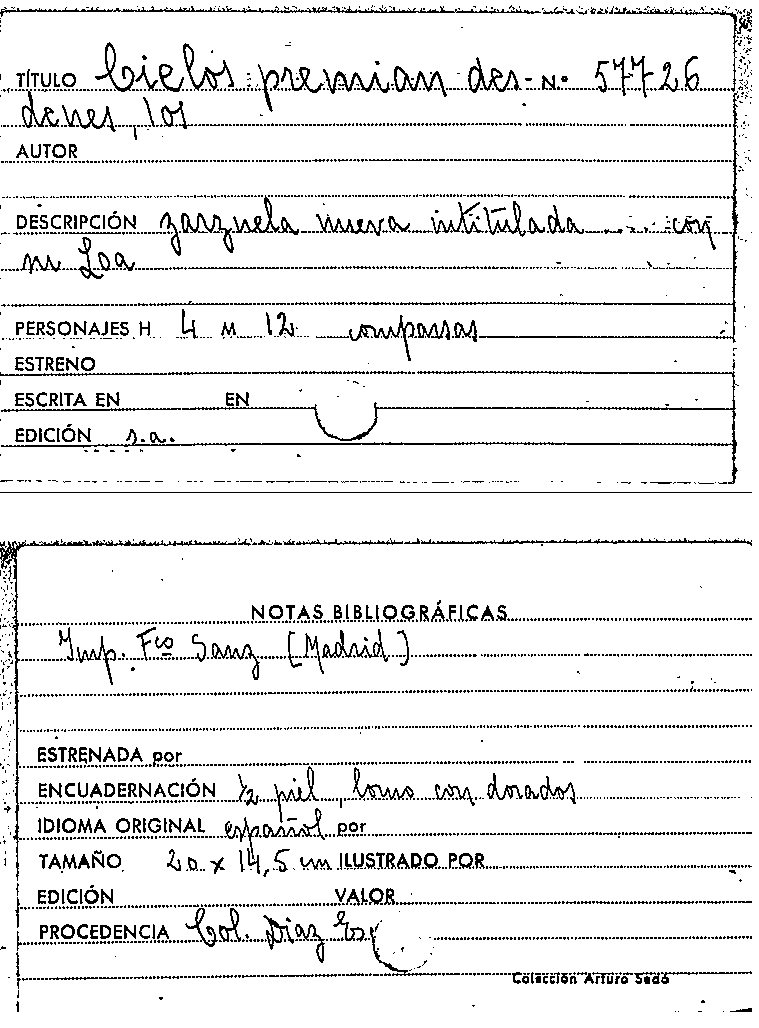 TÍTULO Cielos premian des- Nº 57726
denes, los
AUTOR
DESCRIPCIÓN zarzuela nueva intitulada .... con
su Loa
PERSONAJES H 4 M 12 comparsas
ESTRENO
ESCRITA EN EN
EDICIÓN s.a.
NOTAS BIBLIOGRÁFICAS
Imp. Fco Sanz [Madrid]
ESTRENADA por
ENCUADERNACIÓN ½ piel, lomo con dorados
IDIOMA ORIGINAL español por
TAMAÑO 20 x 14,5 cm ILUSTRADO POR
EDICIÓN VALOR
PROCEDENCIA Col. Díaz
Colección Arturo Sedó